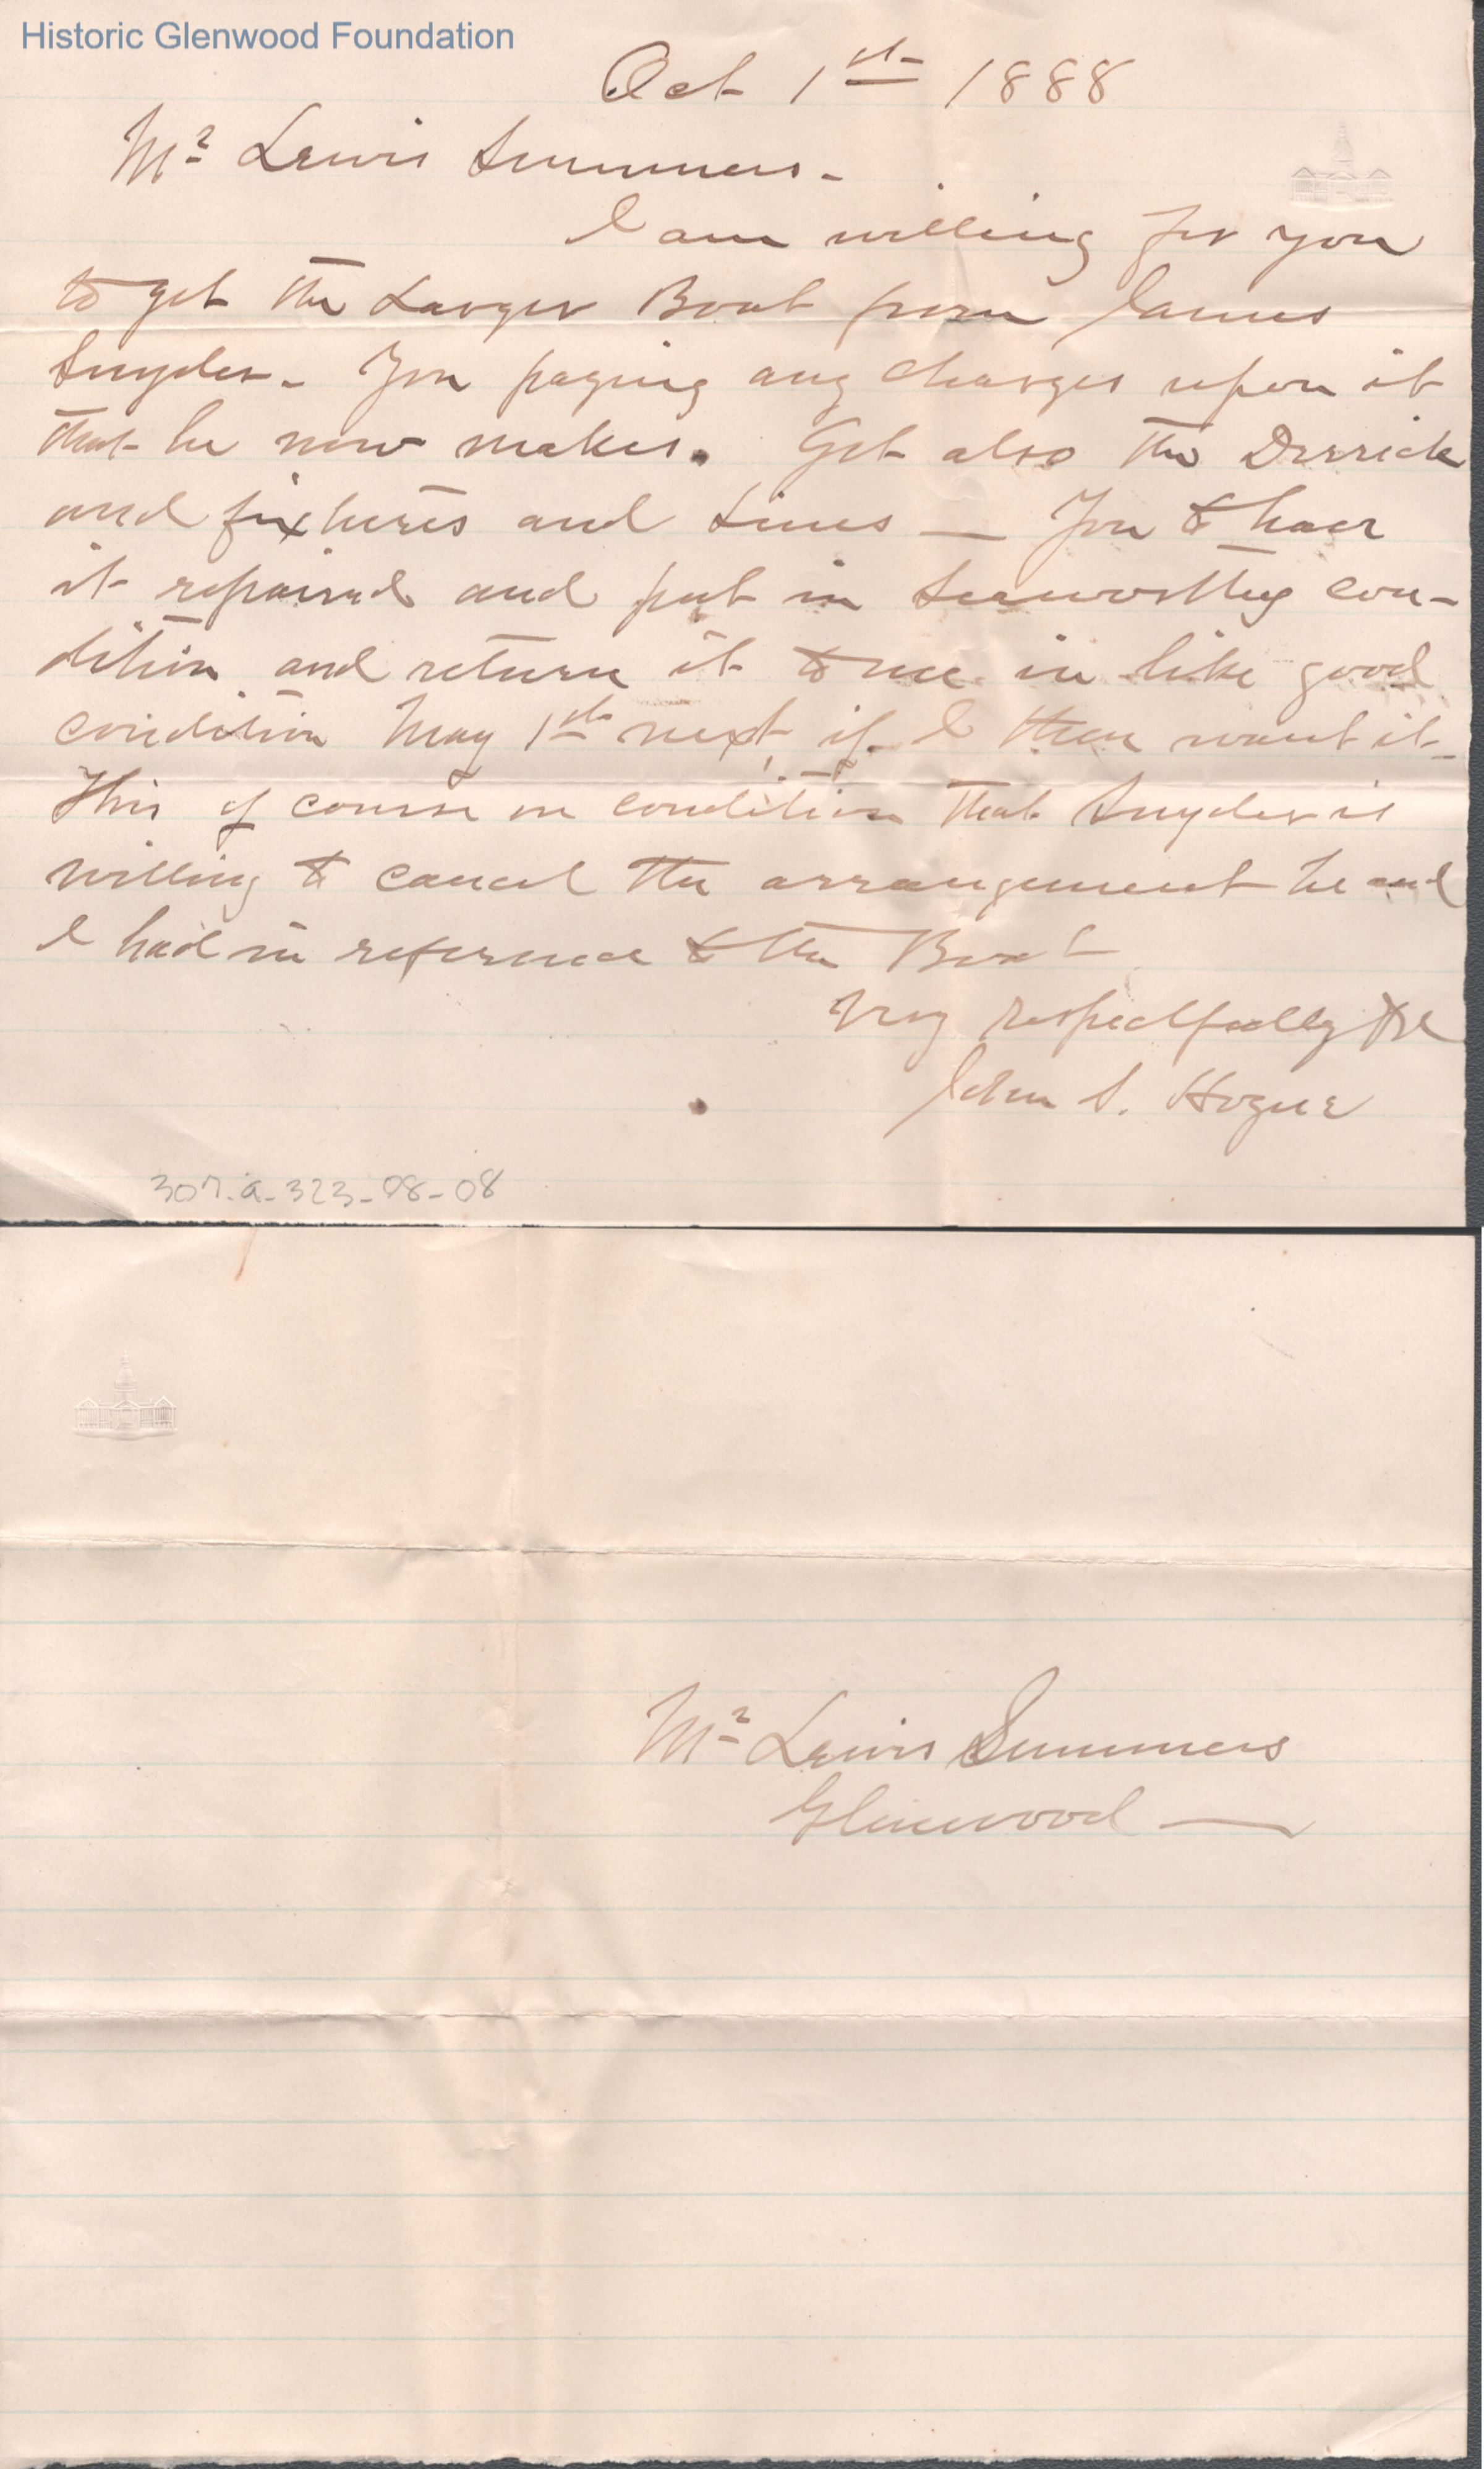 Historic Glenwood Foundation
Oct 1st 1888
Mr Lewis Summers-
I am willing for you
to get the Larger Boat from James
Snyder- You paying any charges upon it
that he now makes. Get also the Derrick
and fixtures and Lines — You to have
it repaired and put in Seaworthy con-
dition and return it to me in like good
condition May 1st next, if I then want it-
This of course on condition that Snyder is
willing to cancel the arrangement he and
I had in reference to the Boat
Very respectfully &c
John S. Hogue
307.a-323-08-08
Mr Lewis Summers
Glenwood —